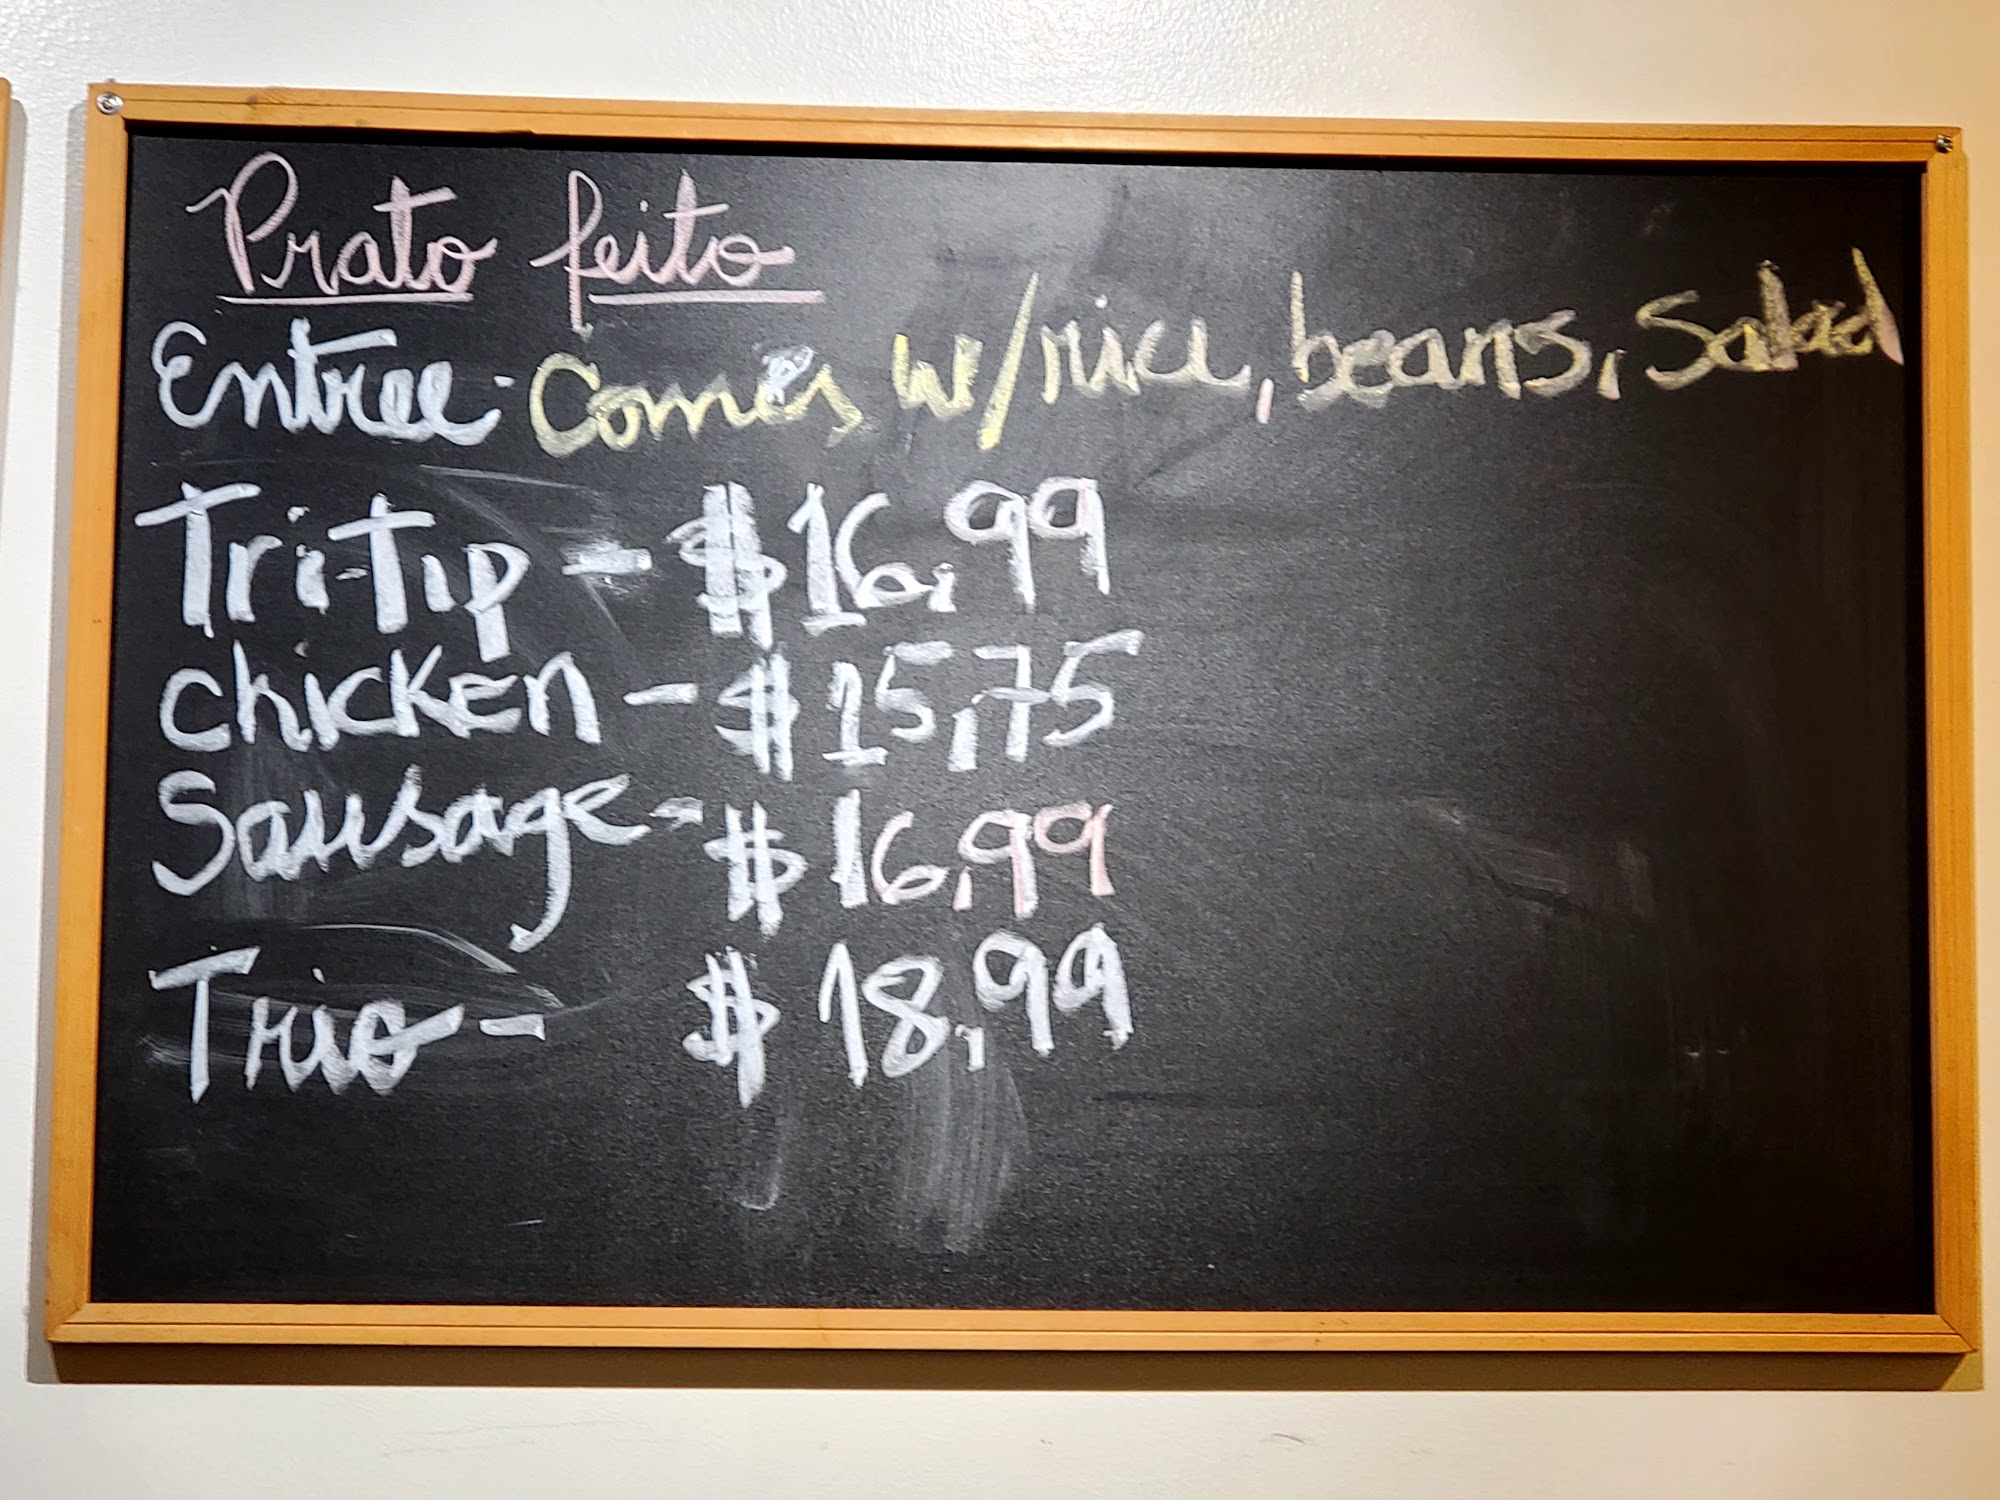 Prato feito
Entree. Comes w/rice, beans, Salad
Tri-Tip - $16,99
chicken - $15,75
Sausage - $16,99
Trio - $18,99